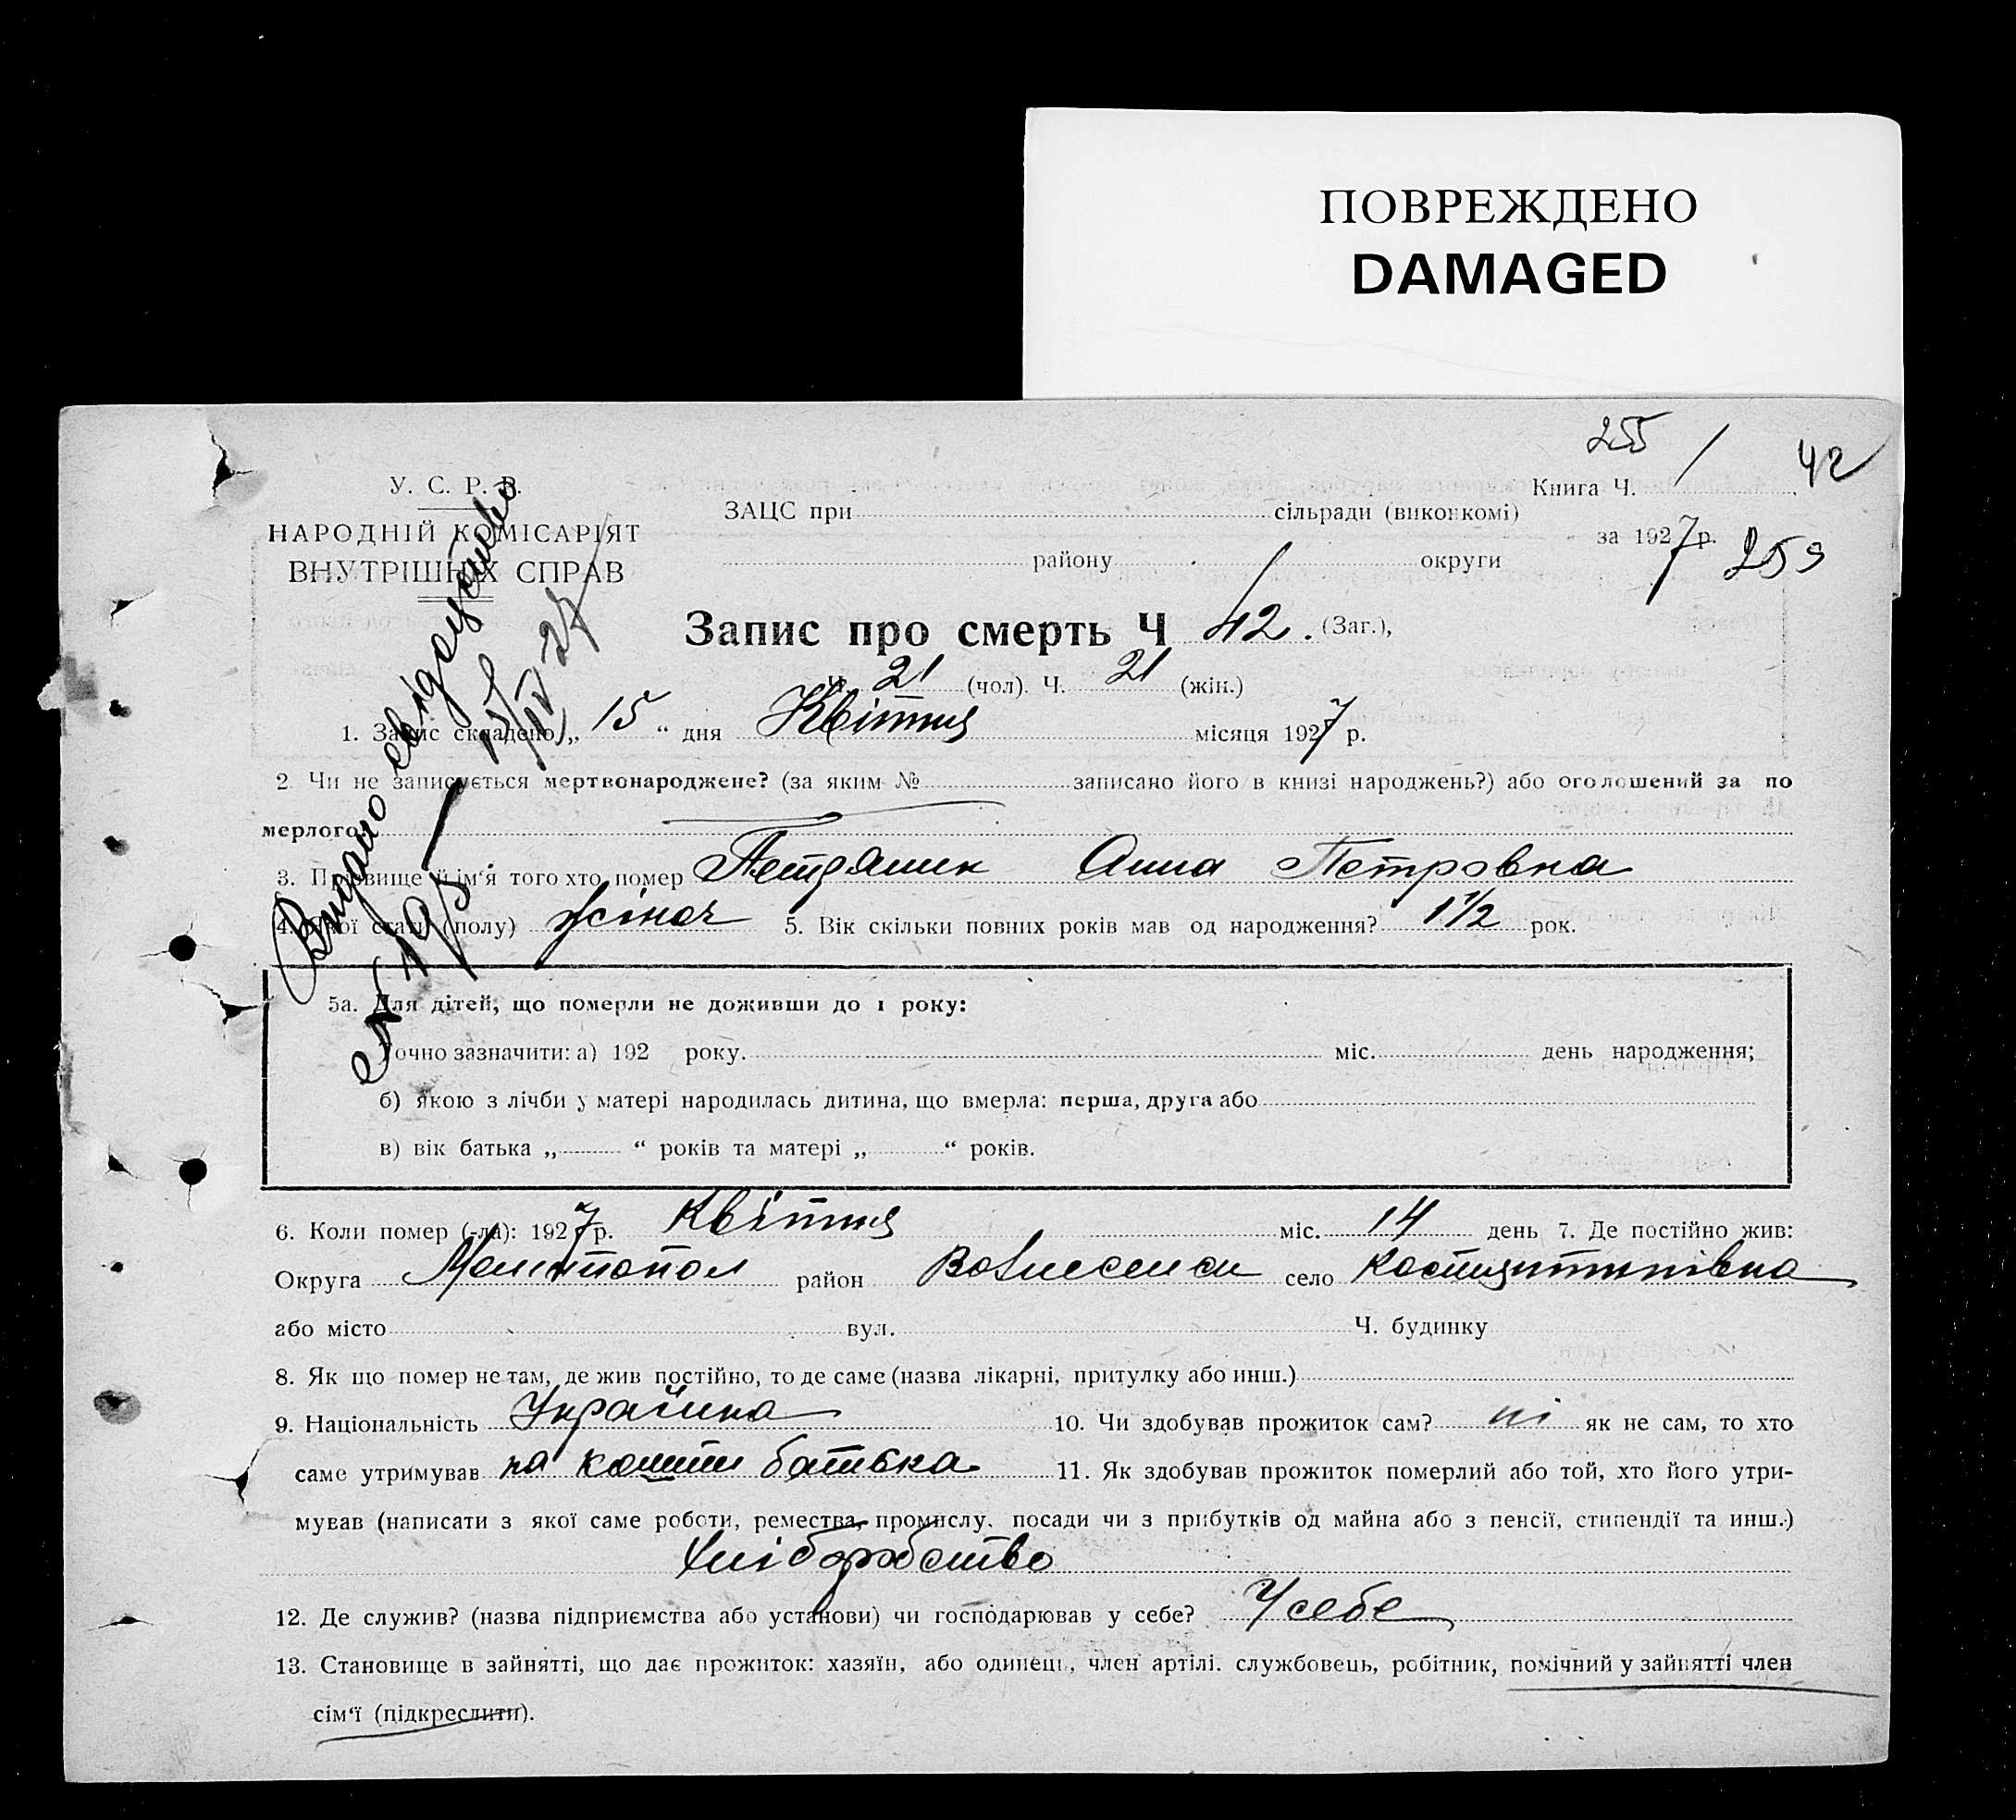 ПОВРЕЖДЕНО
DAMAGED
255 / 42
У. С. Р. Р.
НАРОДНІЙ КОМІСАРІЯТ
ВНУТРІШНІХ СПРАВ
ЗАЦС при сільради (виконкомі)
району округи
Книга Ч.
за 1927 р. 259
Видано свідоцтво
№ 195
15/IV 27
Запис про смерть Ч 42. (Заг.),
Ч. 21 (чол). Ч. 21 (жін.)
1. Запис складено „ 15 “ дня Квітня місяця 1927 р.
2. Чи не записується мертвонароджене? (за яким № записано його в книзі народжень?) або оголошений за по
мерлого?
3. Прізвище й ім‘я того хто помер Анна Петровна
4. Якої стати (полу) жіноч 5. Вік скільки повних років мав од народження? 1 1/2 рок.
5а. Для дітей, що померли не доживши до 1 року:
Точно зазначити: а) 192 року. міс. день народження;
б) якою з лічби у матері народилась дитина, що вмерла: перша, друга або
в) вік батька „ “ років та матері „ “ років.
6. Коли помер (-ла): 1927 р. Квітня міс. 14 день 7. Де постійно жив:
Округа Мелітопол район Вознесенск село Костянтинівка
або місто вул. Ч. будинку
8. Як що помер не там, де жив постійно, то де саме (назва лікарні, притулку або инш.)
9. Національність Українка 10. Чи здобував прожиток сам? ні як не сам, то хто
саме утримував на кошти батька 11. Як здобував прожиток померлий або той, хто його утри-
мував (написати з якої саме роботи, ремества, промислу, посади чи з прибутків од майна або з пенсії, стипендії та инш.)
Хліборобство
12. Де служив? (назва підприємства або установи) чи господарював у себе? У себе
13. Становище в зайнятті, що дає прожиток: хазяїн, або одинець, член артілі. службовець, робітник, помічний у зайнятті член
сім‘ї (підкреслити).